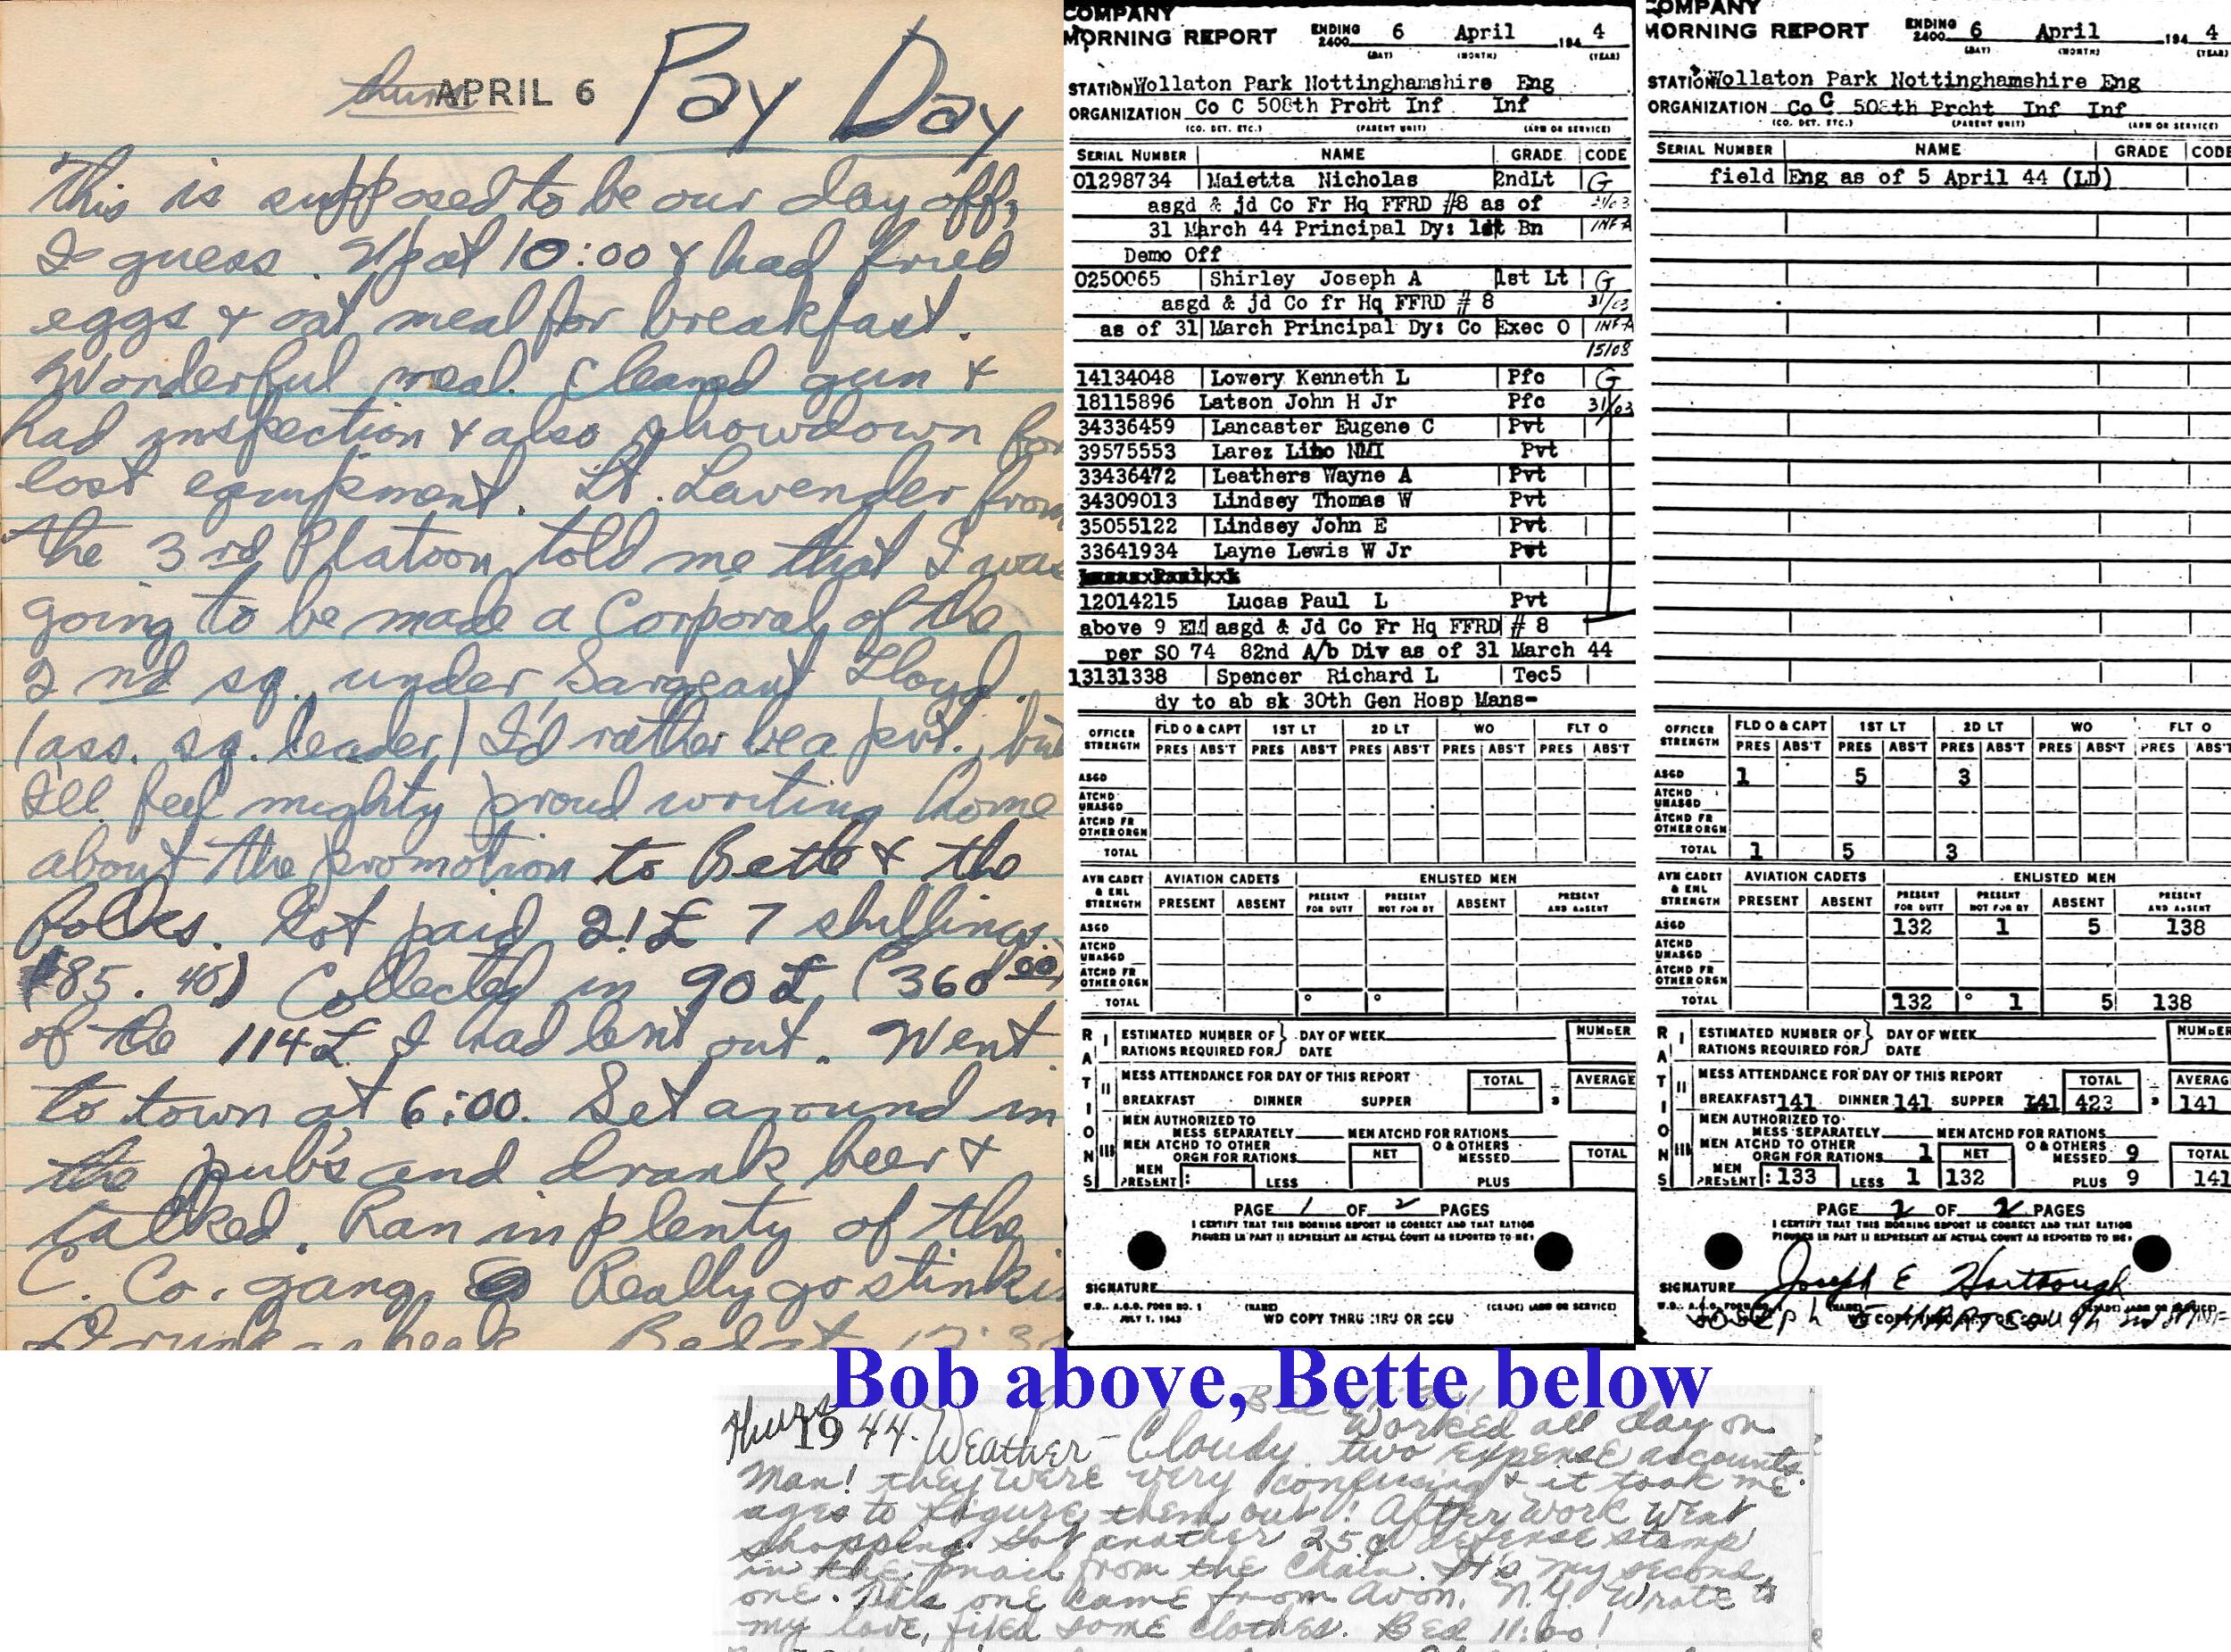 thurs APRIL 6 Pay Day
This is supposed to be our day off,
I guess. Up at 10:00 & had fried
eggs & oat meal for breakfast.
Wonderful meal. Cleaned gun &
had inspection & also showdown for
lost equipment. Lt. Lavender from
the 3rd Platoon told me that I was
going to be made a Corporal of the
2nd sq. under Sargeant Lloyd.
(ass. sq. leader) I'd rather be a pvt., but
I'll feel mighty proud writing home
about the promotion to Bette & the
folks. Got paid 21£ 7 shillings.
($85.40) Collected in 90£ (360.00)
of the 114£ I had lent out. Went
to town at 6:00. Set around in
the pub's and drank beer &
talked. Ran in plenty of the
C. Co. gang. Really go stinkin
Drunk Bed at
COMPANY
MORNING REPORT ENDING 2400 6 April 194 4
(DAY) (MONTH) (YEAR)
STATION Wollaton Park Nottinghamshire Eng
ORGANIZATION Co C 508th Prcht Inf Inf
(CO. DET. ETC.) (PARENT UNIT) (ARM OR SERVICE)
SERIAL NUMBER NAME GRADE CODE
01298734 Maietta Nicholas 2ndLt G
asgd & jd Co Fr Hq FFRD #8 as of 31/03
31 March 44 Principal Dy: 1st Bn INF A
Demo Off
0250065 Shirley Joseph A 1st Lt G
asgd & jd Co fr Hq FFRD # 8 31/03
as of 31 March Principal Dy: Co Exec O INF A
15/03
14134048 Lowery Kenneth L Pfc G
18115896 Latson John H Jr Pfc 31/03
34336459 Lancaster Eugene C Pvt
39575553 Larez Lino NMI Pvt
33436472 Leathers Wayne A Pvt
34309013 Lindsey Thomas W Pvt
35055122 Lindsey John E Pvt
33641934 Layne Lewis W Jr Pvt
12014215 Lucas Paul L Pvt
above 9 EM asgd & Jd Co Fr Hq FFRD # 8
per SO 74 82nd A/b Div as of 31 March 44
13131338 Spencer Richard L Tec5
dy to ab sk 30th Gen Hosp Mans-
OFFICER STRENGTH FLD O & CAPT 1ST LT 2D LT WO FLT O
PRES ABS'T PRES ABS'T PRES ABS'T PRES ABS'T PRES ABS'T
ASGD
ATCHD UNASGD
ATCHD FR OTHER ORGN
TOTAL
AVN CADET & ENL STRENGTH AVIATION CADETS ENLISTED MEN
PRESENT ABSENT PRESENT FOR DUTY PRESENT NOT FOR DY ABSENT PRESENT AND ABSENT
ASGD
ATCHD UNASGD
ATCHD FR OTHER ORGN
TOTAL
RATIONS
I ESTIMATED NUMBER OF RATIONS REQUIRED FOR DAY OF WEEK DATE NUMBER
II MESS ATTENDANCE FOR DAY OF THIS REPORT TOTAL AVERAGE
BREAKFAST DINNER SUPPER
III MEN AUTHORIZED TO MESS SEPARATELY MEN ATCHD FOR RATIONS
MEN ATCHD TO OTHER ORGN FOR RATIONS NET & OTHERS MESSED TOTAL
MEN PRESENT: LESS PLUS
PAGE 1 OF 2 PAGES
I CERTIFY THAT THIS MORNING REPORT IS CORRECT AND THAT RATION
FIGURES IN PART II REPRESENT AN ACTUAL COUNT AS REPORTED TO ME:
SIGNATURE
W.D. A.G.O. FORM NO. 1 (NAME) (GRADE) (ARM OR SERVICE)
JULY 1, 1943 WD COPY THRU MRU OR SCU
COMPANY
MORNING REPORT ENDING 2400 6 April 194 4
(DAY) (MONTH) (YEAR)
STATION Wollaton Park Nottinghamshire Eng
ORGANIZATION Co C 508th Prcht Inf Inf
(CO. DET. ETC.) (PARENT UNIT) (ARM OR SERVICE)
SERIAL NUMBER NAME GRADE CODE
field Eng as of 5 April 44 (LD)
OFFICER STRENGTH FLD O & CAPT 1ST LT 2D LT WO FLT O
PRES ABS'T PRES ABS'T PRES ABS'T PRES ABS'T PRES ABS'T
ASGD 1 5 3
ATCHD UNASGD
ATCHD FR OTHER ORGN
TOTAL 1 5 3
AVN CADET & ENL STRENGTH AVIATION CADETS ENLISTED MEN
PRESENT ABSENT PRESENT FOR DUTY PRESENT NOT FOR DY ABSENT PRESENT AND ABSENT
ASGD 132 1 5 138
ATCHD UNASGD
ATCHD FR OTHER ORGN
TOTAL 132 1 5 138
RATIONS
I ESTIMATED NUMBER OF RATIONS REQUIRED FOR DAY OF WEEK DATE NUMBER
II MESS ATTENDANCE FOR DAY OF THIS REPORT TOTAL AVERAGE
BREAKFAST 141 DINNER 141 SUPPER 141 423 141
III MEN AUTHORIZED TO MESS SEPARATELY MEN ATCHD FOR RATIONS
MEN ATCHD TO OTHER ORGN FOR RATIONS 1 NET & OTHERS MESSED 9 TOTAL
MEN PRESENT: 133 LESS 1 132 PLUS 9 141
PAGE 2 OF 2 PAGES
I CERTIFY THAT THIS MORNING REPORT IS CORRECT AND THAT RATION
FIGURES IN PART II REPRESENT AN ACTUAL COUNT AS REPORTED TO ME:
SIGNATURE Joseph E Hartsough
JOSEPH E HARTSOUGH
Bob above, Bette below
Thurs 1944. Weather - Cloudy. Worked all day on
two expense accounts.
Man! they were very confusing & it took me
ages to figure them out! After work went
shopping. Got another 25¢ defense stamp
in the mail from the chain. It's my second
one. This one came from Avon, N.Y. Wrote to
my love, fixed some clothes. Bed 11:00!